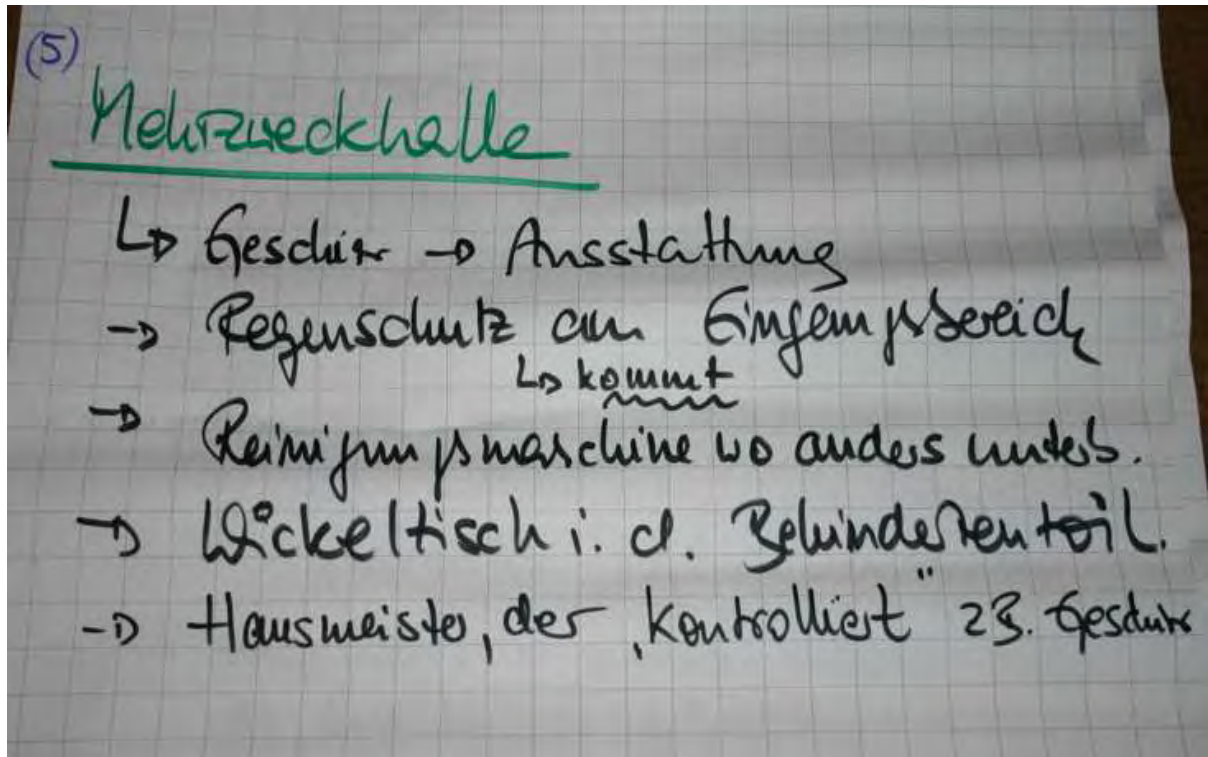 (5)
Mehrzweckhalle
↳ Geschirr → Ausstattung
→ Regenschutz am Eingangsbereich
↳ kommt
→ Reinigungsmaschine wo anders unterb.
→ Wickeltisch i. d. Behindertentoil.
→ Hausmeister, der „kontrolliert" zB. Geschirr